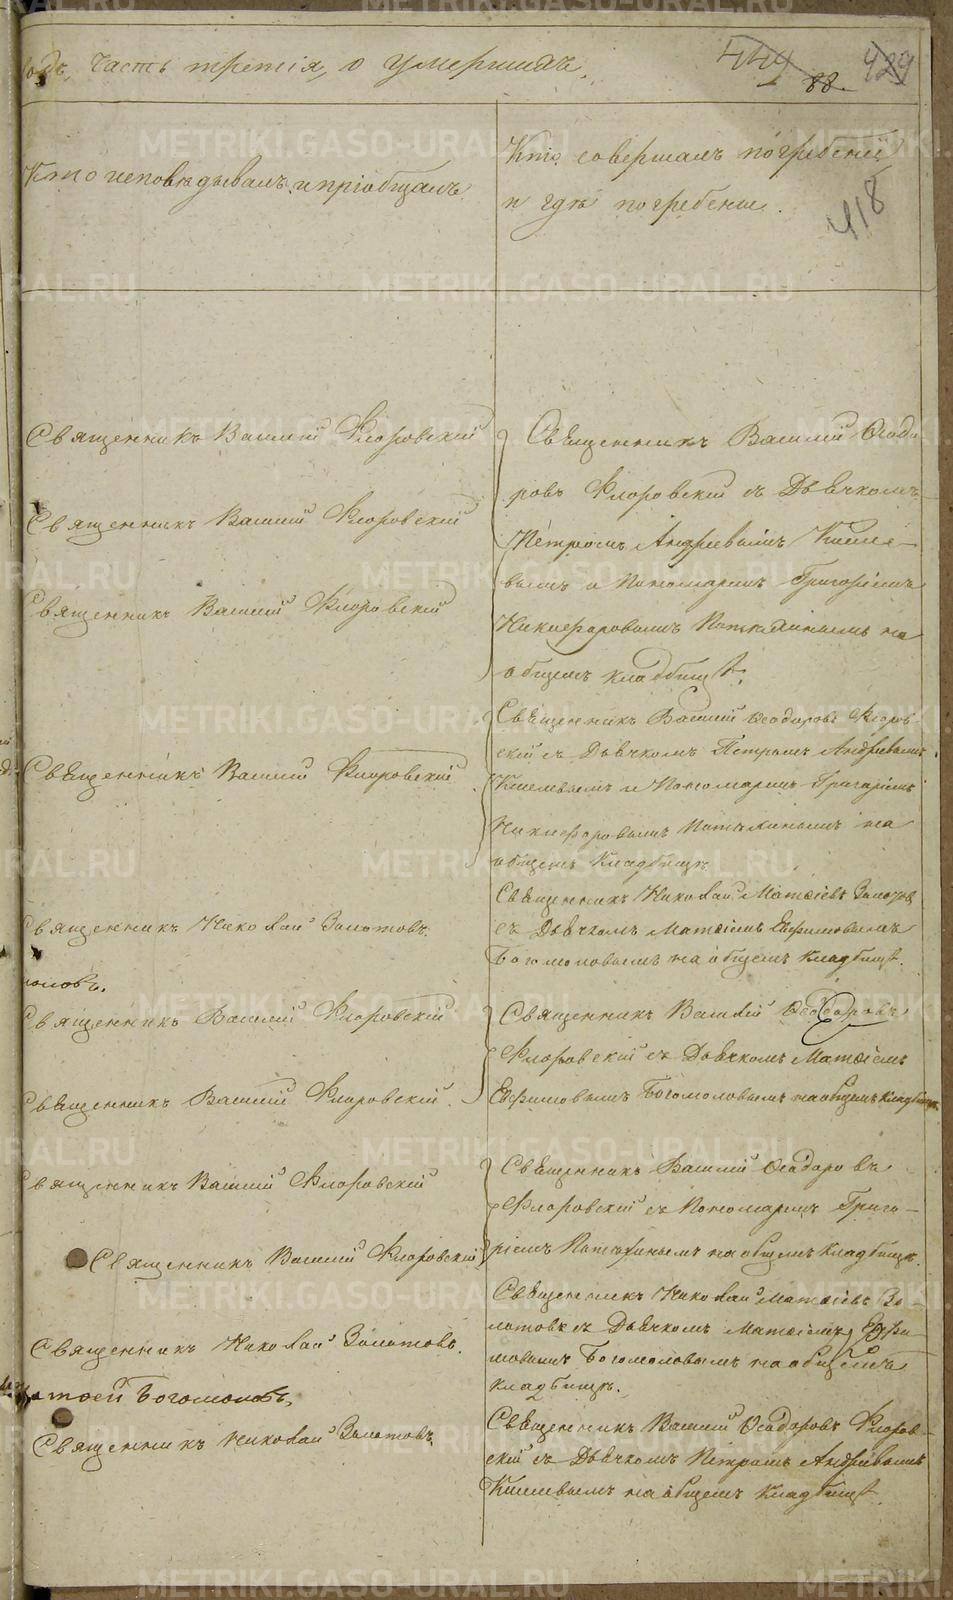 годъ, Часть третія, о умершихъ.
444
88.
429
418
Кто исповѣдывалъ и пріобщалъ
Кто совершалъ погребеніе
и гдѣ погребены.
Священникъ Василій Флоровскій
Священникъ Василій Флоровскій
Священникъ Василій Флоровскій
Священникъ Василій Флоровскій
Священникъ Николай Золотовъ.
Священникъ Василій Флоровскій
Священникъ Василій Флоровскій.
Священникъ Василій Флоровскій
Священникъ Василій Флоровскій
Священникъ Николай Золотовъ.
Матѳей Богомоловъ,
Священникъ Николай Золотовъ.
Священникъ Василій Ѳеодо
ровъ Флоровскій съ Дьячкомъ
Петромъ Андреевымъ Киселе-
вымъ и Пономаремъ Григоріемъ
Никифоровымъ Потяхинымъ на
общемъ кладбищѣ.
Священникъ Василій Ѳеодоровъ Флоров-
скій съ Дьячкомъ Петромъ Андреевымъ
Киселевымъ и Пономаремъ Григоріемъ
Никифоровымъ Потяхинымъ на
общемъ Кладбищѣ.
Священникъ Николай Матѳіевъ Золотовъ
съ Дьячкомъ Матѳіемъ Ефимовымъ
Богомоловымъ на общемъ Кладбищѣ.
Священникъ Василій Ѳеодоровъ
Флоровскій съ Дьячкомъ Матѳіемъ
Ефимовымъ Богомоловымъ на общемъ Кладбищѣ.
Священникъ Василій Ѳеодоровъ
Флоровскій съ Пономаремъ Григо-
ріемъ Потяхинымъ на общемъ Кладбищѣ.
Священникъ Николай Матѳіевъ Зо-
лотовъ съ Дьячкомъ Матѳіемъ Ефи-
мовымъ Богомоловымъ на общемъ
кладбищѣ.
Священникъ Василій Ѳеодоровъ Флоров-
скій съ Дьячкомъ Петромъ Андреевымъ
Киселевымъ на общемъ Кладбищѣ.
METRIKI.GASO-URAL.RU